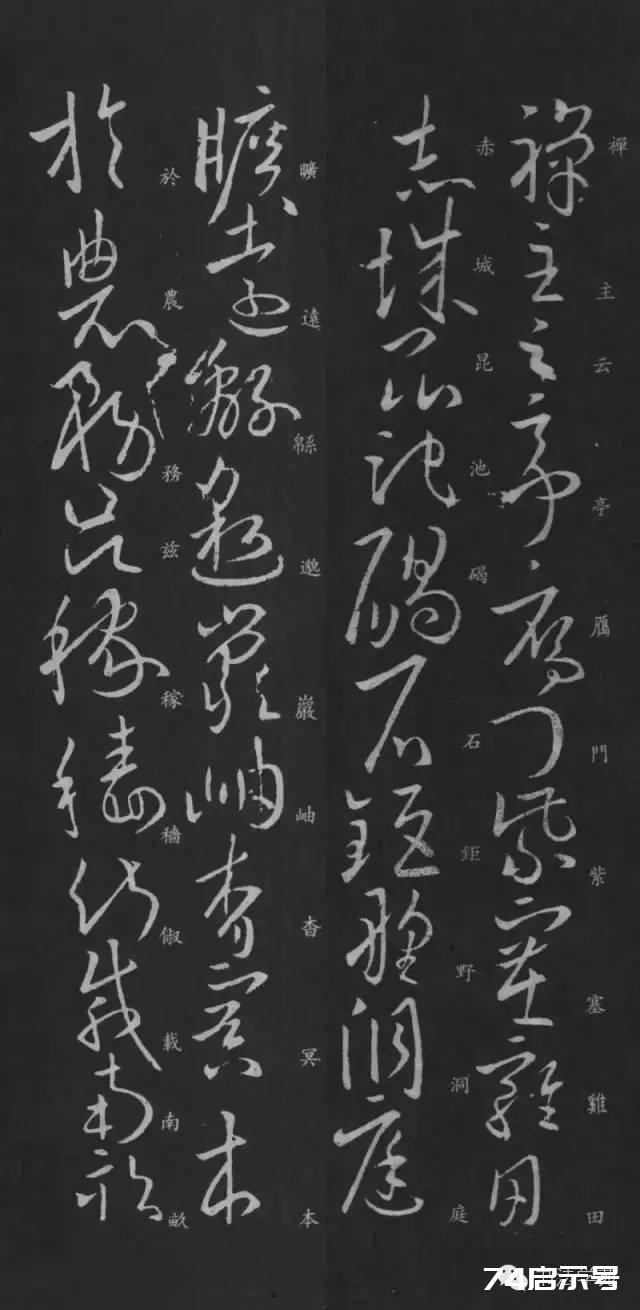 禪主云亭鴈門紫塞雞田
禪主云亭鴈門紫塞雞田
赤城昆池碣石鉅野洞庭
赤城昆池碣石鉅野洞庭
曠遠緜邈巖岫杳冥本
曠遠緜邈巖岫杳冥本
於農務茲稼穡俶載南畝
於農務茲稼穡俶載南畝
74启示号